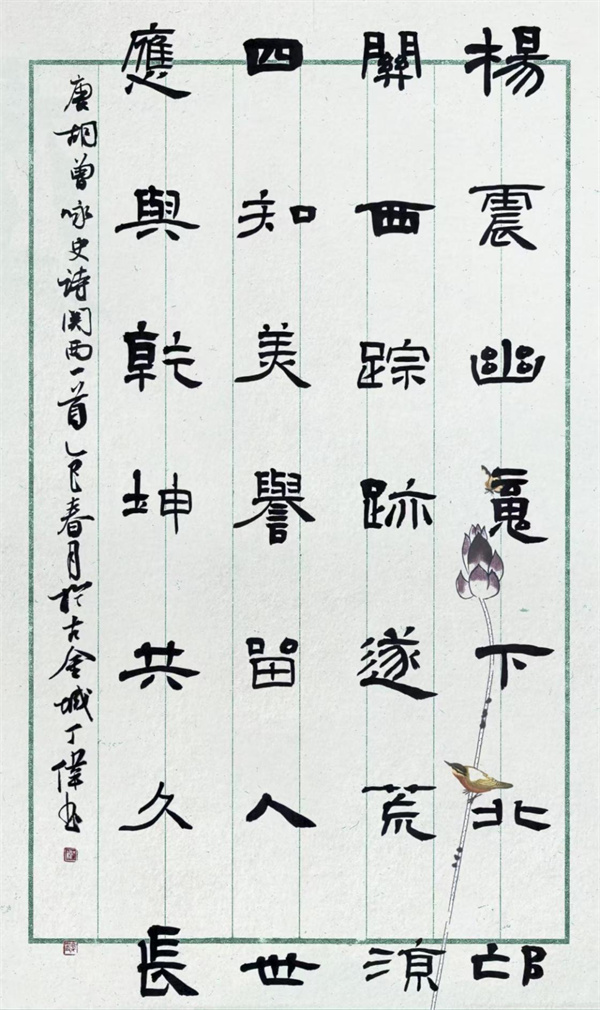 楊震幽䰟下北邙
關西踪跡遂荒涼
四知美譽留人世
應與乾坤共久長
唐胡曾咏史詩関西一首乙巳春月於古金城丁偉书